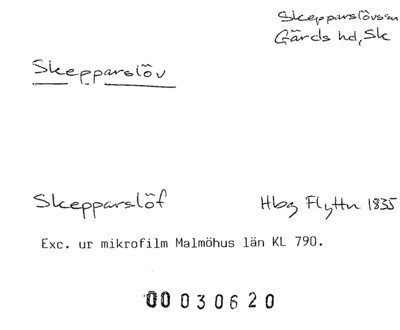 Skepparslövs sn
Gärds hd, Sk
Skepparslöv
Skepparslöf
Hbg Flyttn 1835
Exc. ur mikrofilm Malmöhus län KL 790.
00030620